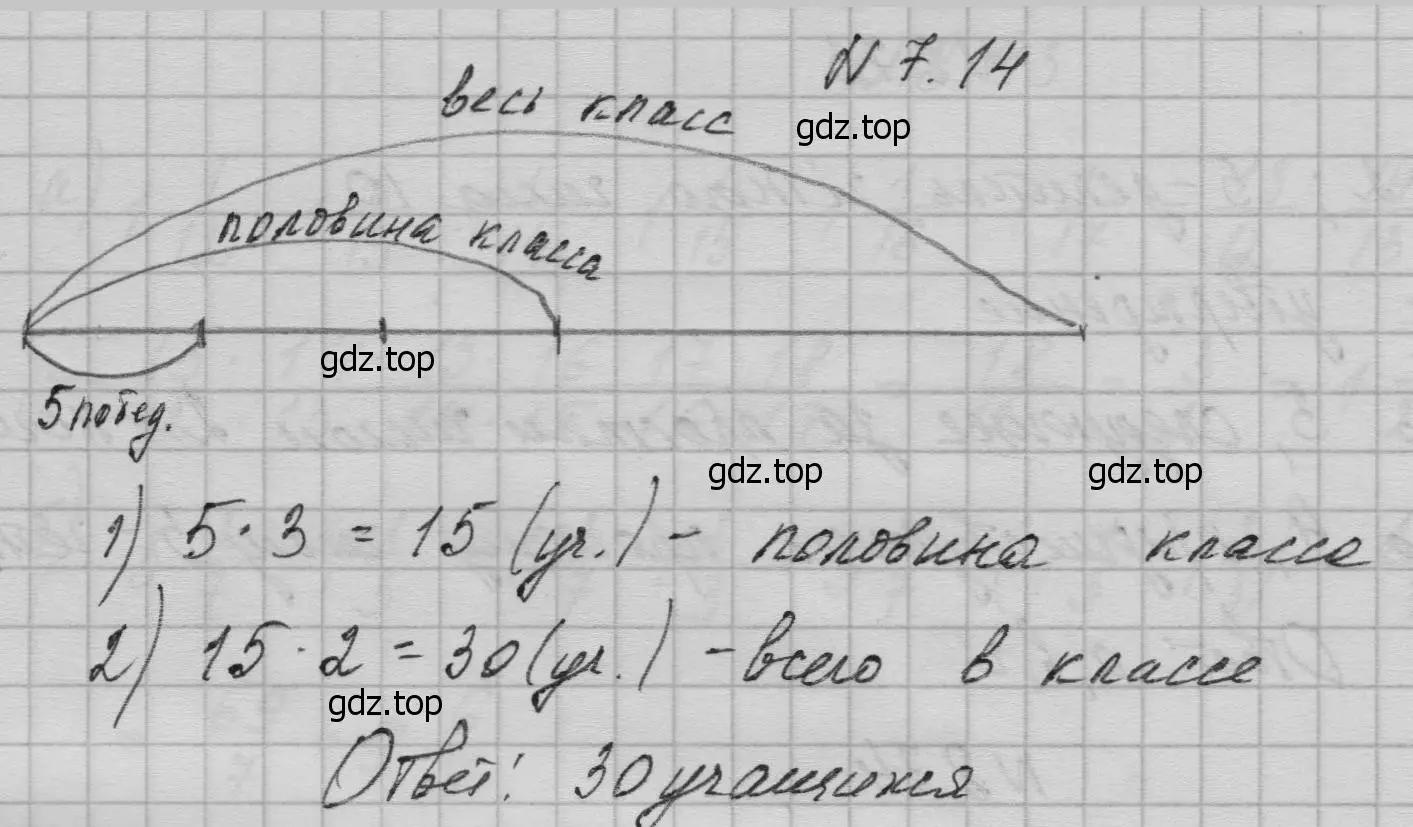 N 7.14
весь класс
gdz.top
половина класса
gdz.top
5 побед.
gdz.top gdz.top
1) 5 · 3 = 15 (уч.) – половина класса
2) 15 · 2 = 30 (уч.) – всего в классе
gdz.top
Ответ: 30 учащихся